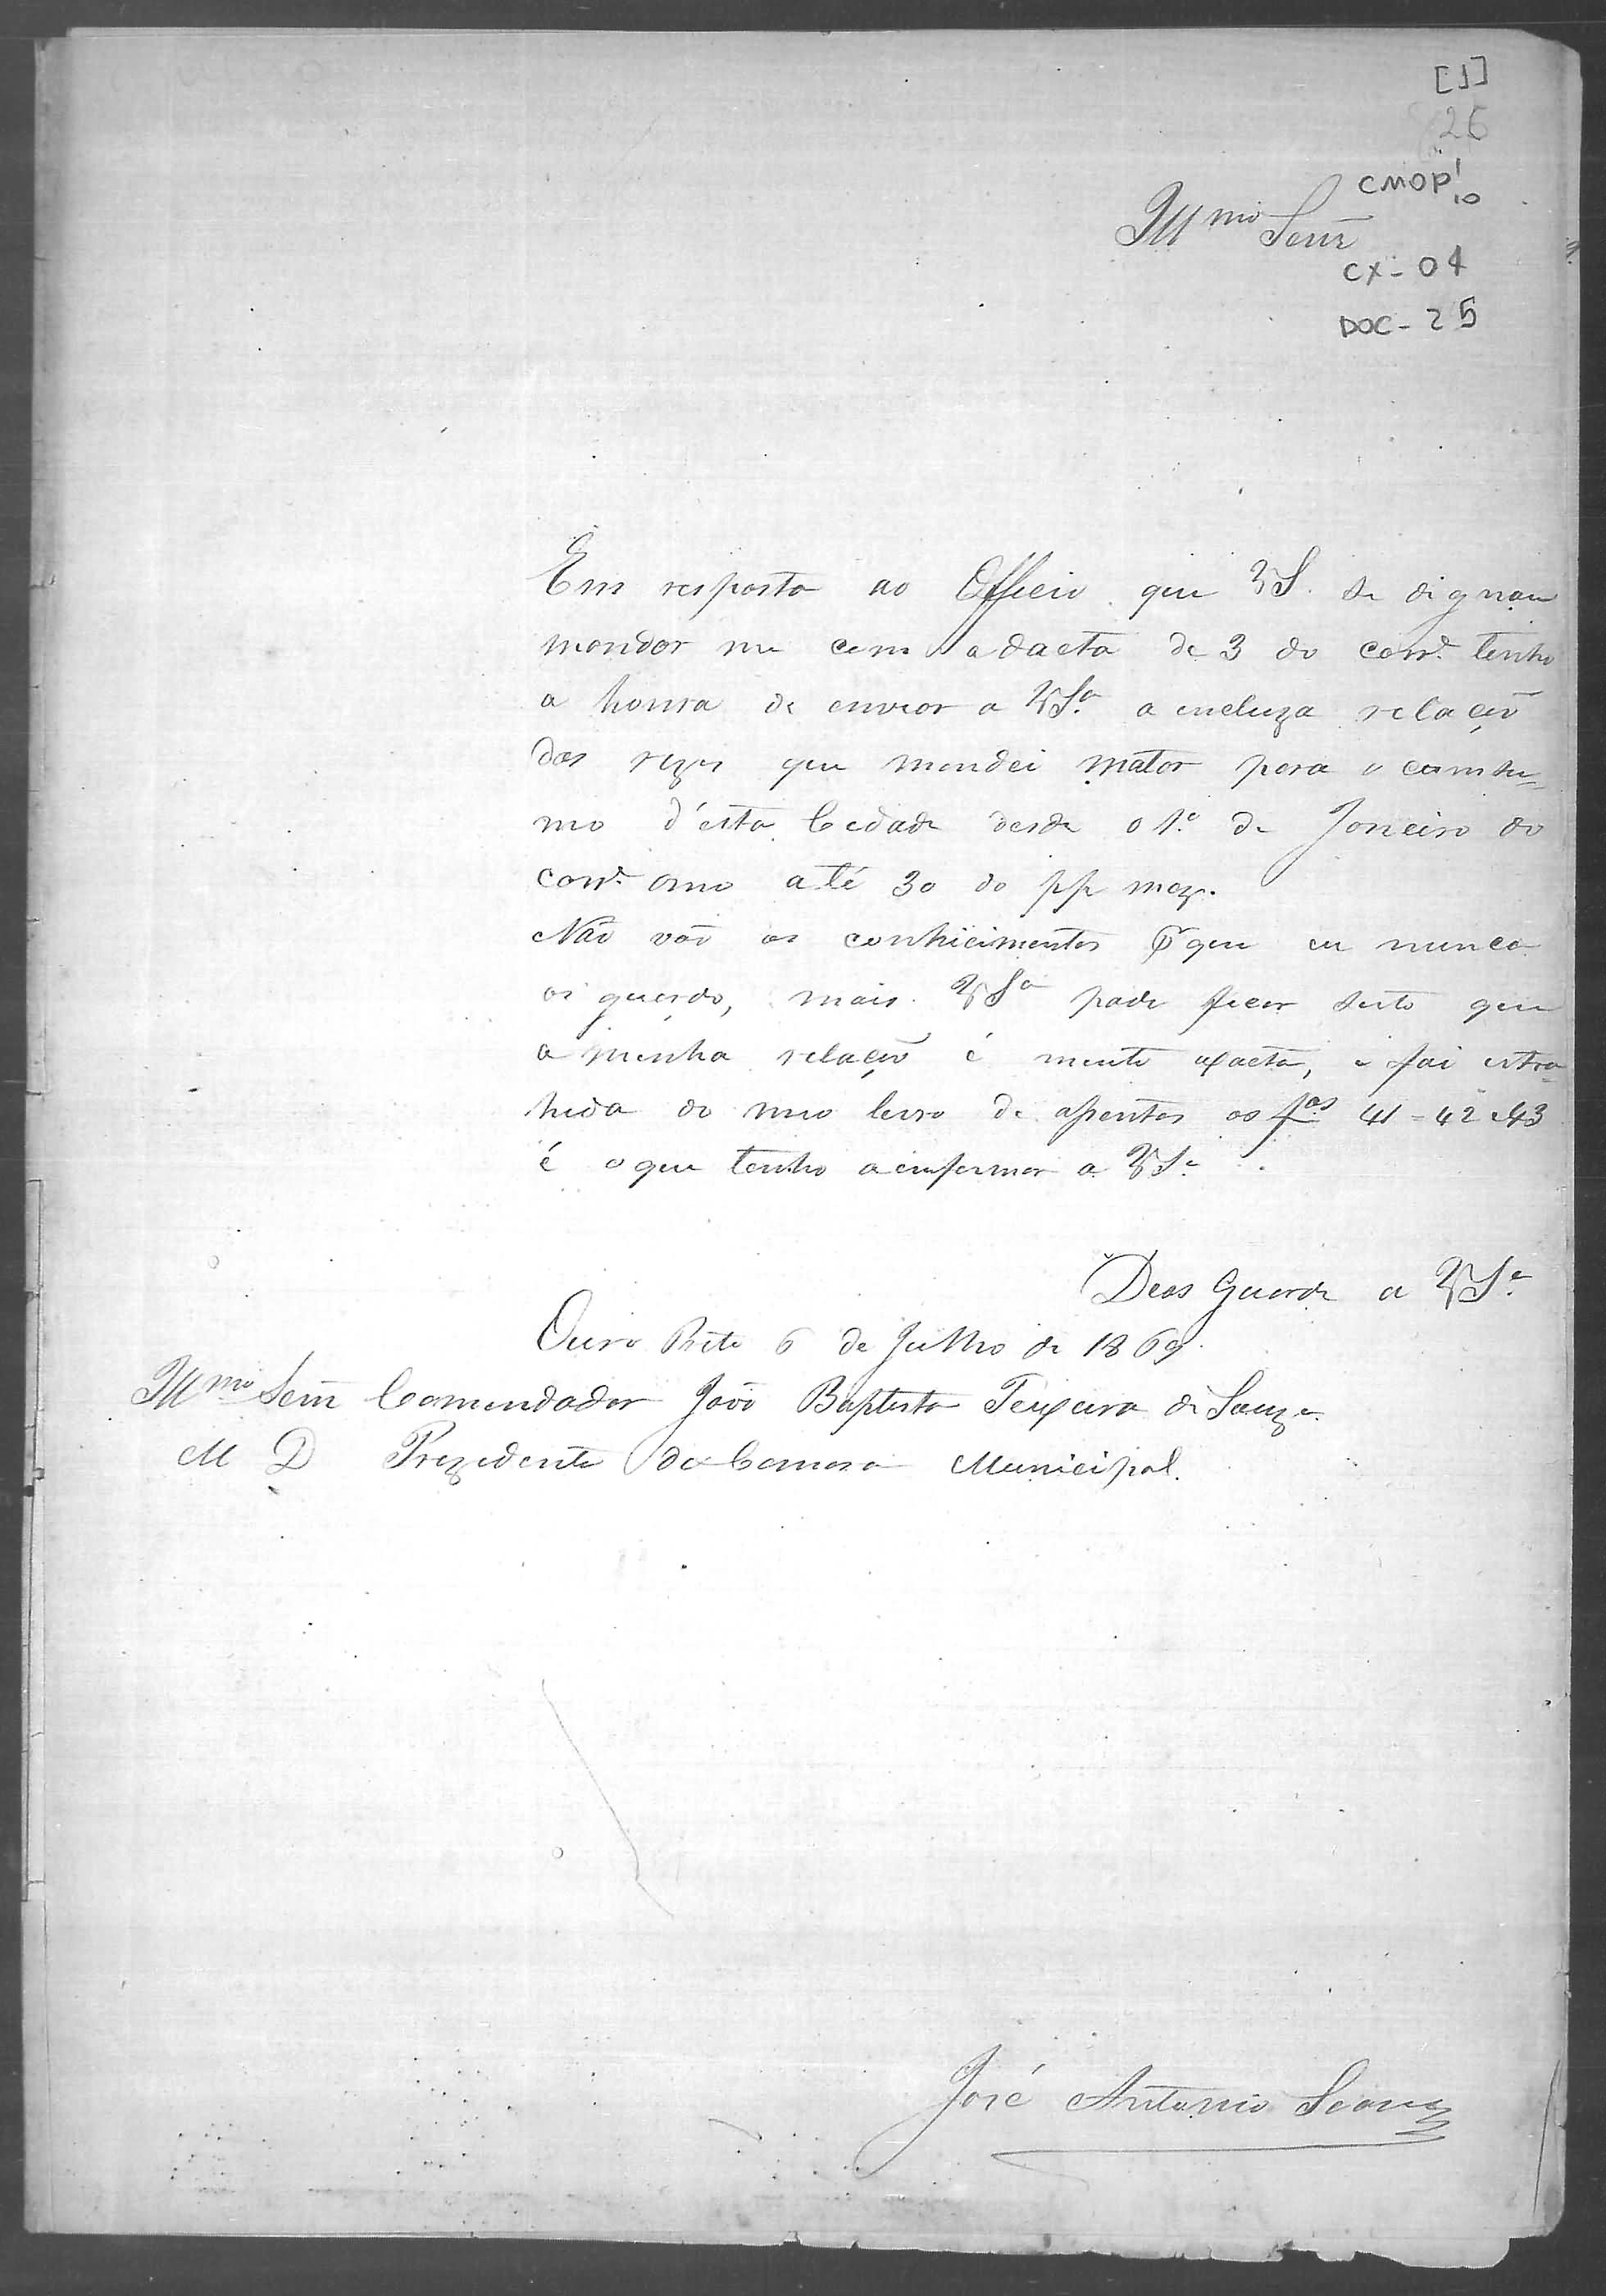 [1]
26
CMOP 1
10
Illmo Senr
CX - 04
DOC - 25
Em resposta ao Officio que VS. se dignou
mandar me com a dacta de 3 do corre. tenho
a honra de enviar a VSa. a incluza relação
das rezes que mandei matar para o consu=
mo d'esta Cidade desde o 1o. de Janeiro do
corre. anno até 30 do pp mez.
Não vão os conhecimentos pr que eu nunca
os guardo, mais VSa pode ficar serto que
a minha relação é mente exacta, e foi extra=
hida do meo livro de assentos as fas 41 = 42 e 43
é o que tenho a enformar a VSa.
Deos Guarde a VSa.
Ouro Preto 6 de Julho de 1869.
Illmo Senr Comendador João Baptista Teixeira de Souza.
M D Prezidente da Camara Municipal.
José Antonio